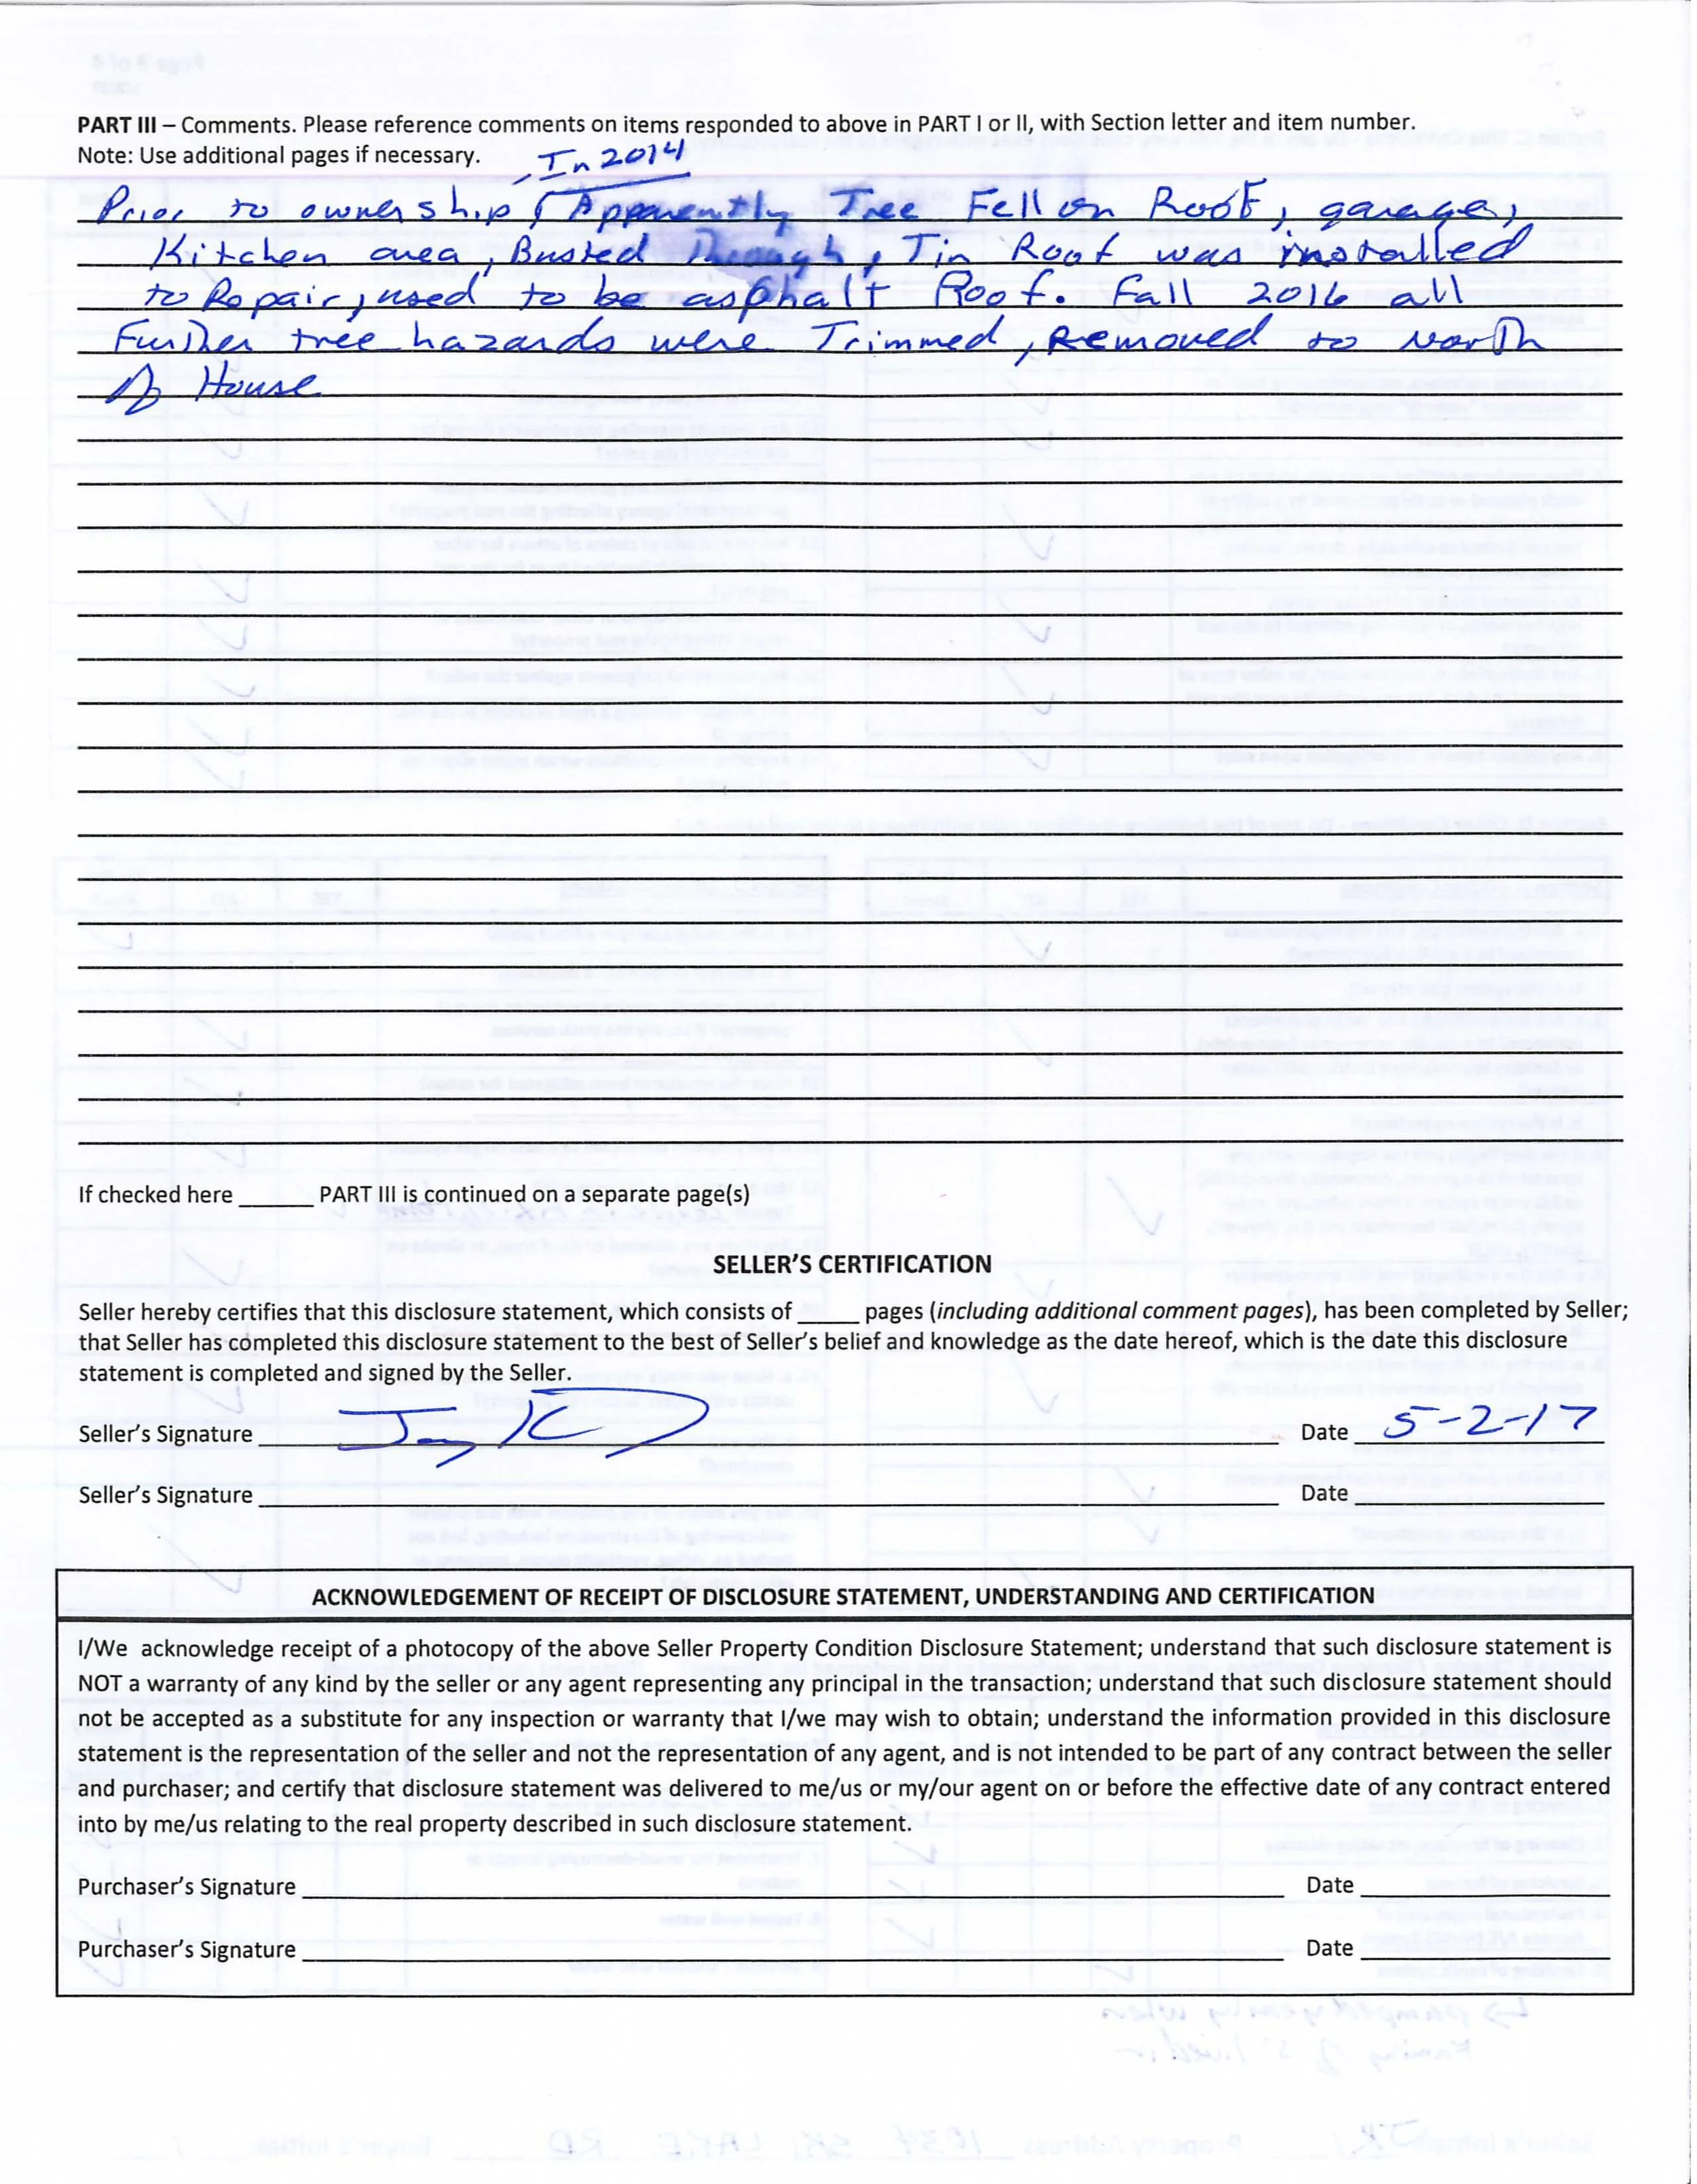 PART III – Comments. Please reference comments on items responded to above in PART I or II, with Section letter and item number.
Note: Use additional pages if necessary.
In 2014
Prior to ownership, Apparently Tree Fell on Roof, garage,
Kitchen area, Busted Through, Tin Roof was installed
to Repair, used to be asphalt Roof. Fall 2016 all
Further tree hazards were Trimmed, Removed to North
of House
If checked here ______ PART III is continued on a separate page(s)
SELLER'S CERTIFICATION
Seller hereby certifies that this disclosure statement, which consists of _____ pages (including additional comment pages), has been completed by Seller;
that Seller has completed this disclosure statement to the best of Seller's belief and knowledge as the date hereof, which is the date this disclosure
statement is completed and signed by the Seller.
Seller's Signature Date 5-2-17
Seller's Signature Date
ACKNOWLEDGEMENT OF RECEIPT OF DISCLOSURE STATEMENT, UNDERSTANDING AND CERTIFICATION
I/We acknowledge receipt of a photocopy of the above Seller Property Condition Disclosure Statement; understand that such disclosure statement is
NOT a warranty of any kind by the seller or any agent representing any principal in the transaction; understand that such disclosure statement should
not be accepted as a substitute for any inspection or warranty that I/we may wish to obtain; understand the information provided in this disclosure
statement is the representation of the seller and not the representation of any agent, and is not intended to be part of any contract between the seller
and purchaser; and certify that disclosure statement was delivered to me/us or my/our agent on or before the effective date of any contract entered
into by me/us relating to the real property described in such disclosure statement.
Purchaser's Signature Date
Purchaser's Signature Date